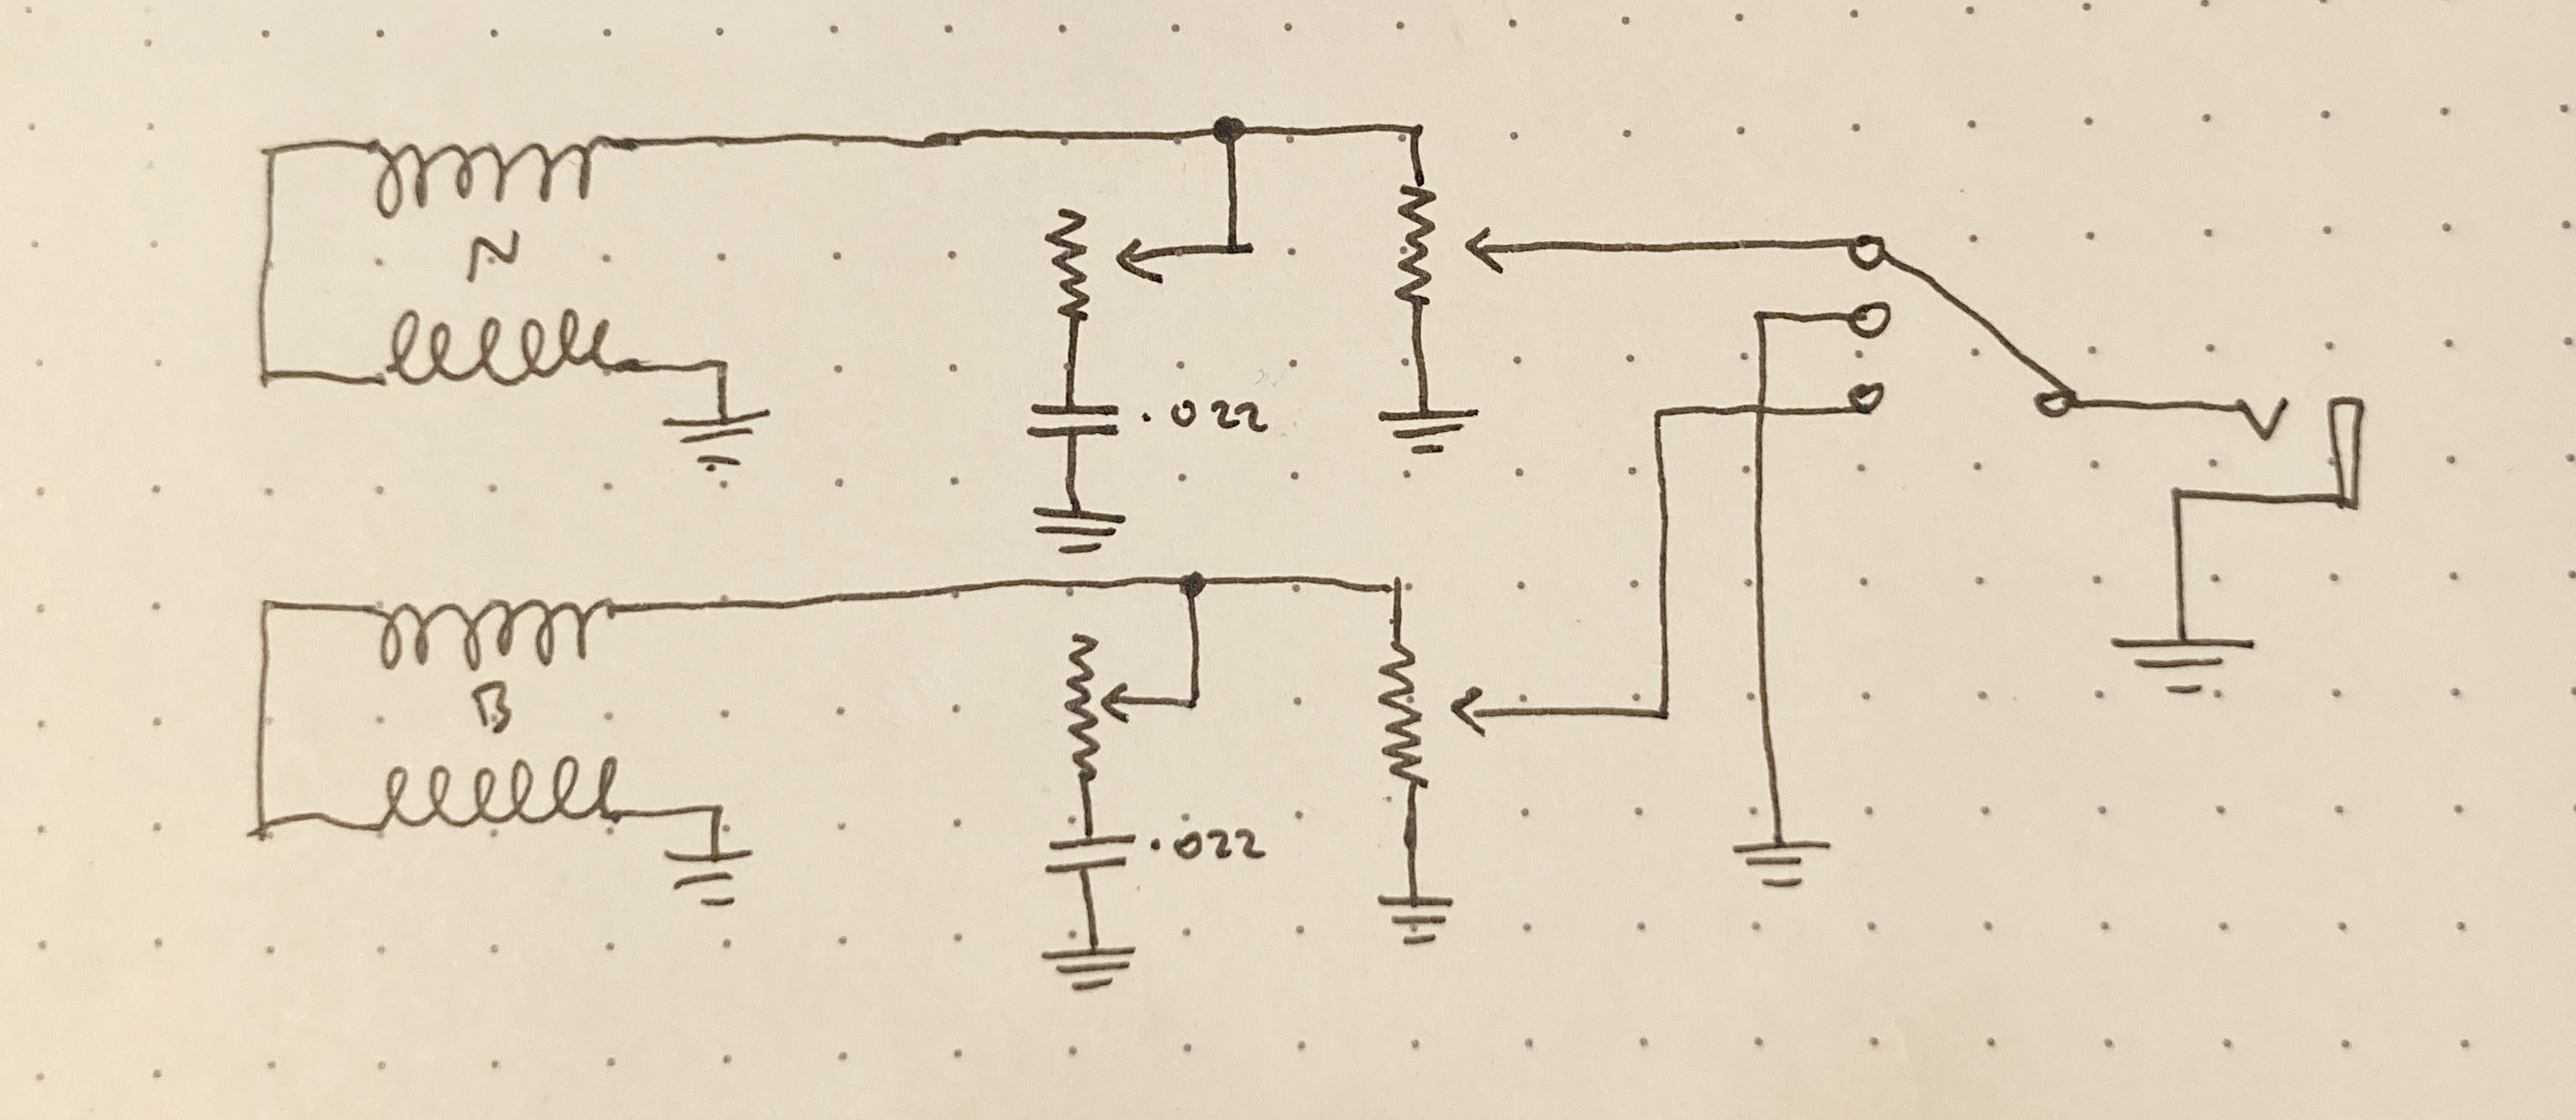 N
.022
B
.022